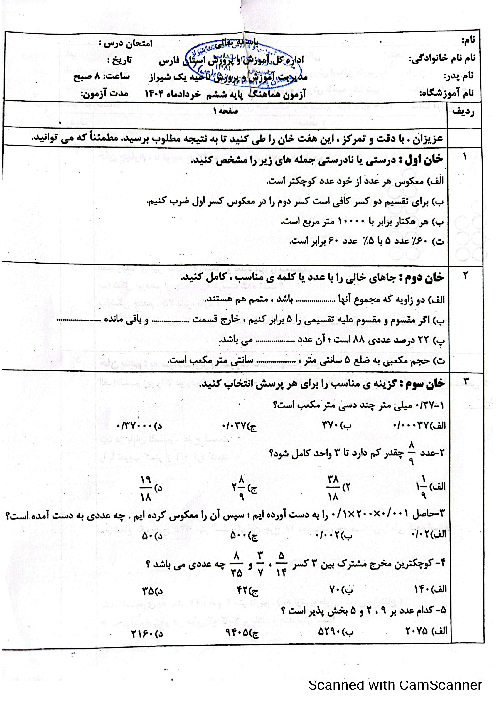 نام:
نام خانوادگی:
نام پدر:
نام آموزشگاه:
باسمه تعالی
اداره کل آموزش و پرورش استان فارس
مدیریت آموزش و پرورش ناحیه یک شیراز
آزمون هماهنگ پایه ششم خردادماه ۱۴۰۴
امتحان درس :
تاریخ :
ساعت: ۸ صبح
مدت آزمون:
ردیف
صفحه ۱
عزیزان ، با دقت و تمرکز ، این هفت خان را طی کنید تا به نتیجه مطلوب برسید. مطمئناً که می توانید.
۱
خان اول : درستی یا نادرستی جمله های زیر را مشخص کنید.
الف) معکوس هر عدد از خود عدد کوچکتر است.
ب) برای تقسیم دو کسر کافی است کسر دوم را در معکوس کسر اول ضرب کنیم.
پ) هر هکتار برابر با ۱۰۰۰۰ متر مربع است.
ت) ۶۰٪ عدد ۵ با ۵٪ عدد ۶۰ برابر است.
۲
خان دوم : جاهای خالی را با عدد یا کلمه ی مناسب ، کامل کنید.
الف) دو زاویه که مجموع آنها .................. باشد ، متمم هم هستند.
ب) اگر مقسوم و مقسوم علیه تقسیمی را ۵ برابر کنیم ، خارج قسمت .................. و باقی مانده ..................
پ) ۲۲ درصد عددی ۸۸ است ؛ آن عدد .................. می باشد.
ت) حجم مکعبی به ضلع ۵ سانتی متر ، .................. سانتی متر مکعب است.
۳
خان سوم : گزینه ی مناسب را برای هر پرسش انتخاب کنید.
۱- ۰/۳۷ میلی متر چند دسی متر مکعب است؟
الف) ۰/۰۰۰۳۷ ب) ۳۷۰ ج) ۰/۰۳۷ د) ۰/۳۷۰۰۰
۲-عدد ۸/۹ چقدر کم دارد تا ۳ واحد کامل شود؟
الف) ۱ ۱/۹ ۲) ۳۸/۱۸ ج) ۲ ۸/۹ د) ۱۹/۱۸
۳-حاصل ۰/۱×۲۰۰×۰/۰۰۱ را به دست آورده ایم ؛ سپس آن را معکوس کرده ایم . چه عددی به دست آمده است؟
الف) ۰/۰۲ ب) ۰/۰۰۲ ج) ۵۰۰ د) ۵۰
۴- کوچکترین مخرج مشترک بین ۳ کسر ۵/۱۴ ، ۳/۷ و ۸/۳۵ چه عددی می باشد ؟
الف) ۱۴۰ ب) ۷۰ ج) ۴۲ د) ۳۵
۵- کدام عدد بر ۹ ، ۲ و ۵ بخش پذیر است ؟
الف) ۲۰۷۵ ب) ۵۲۹۰ ج) ۹۴۰۵ د) ۲۱۶۰
Scanned with CamScanner